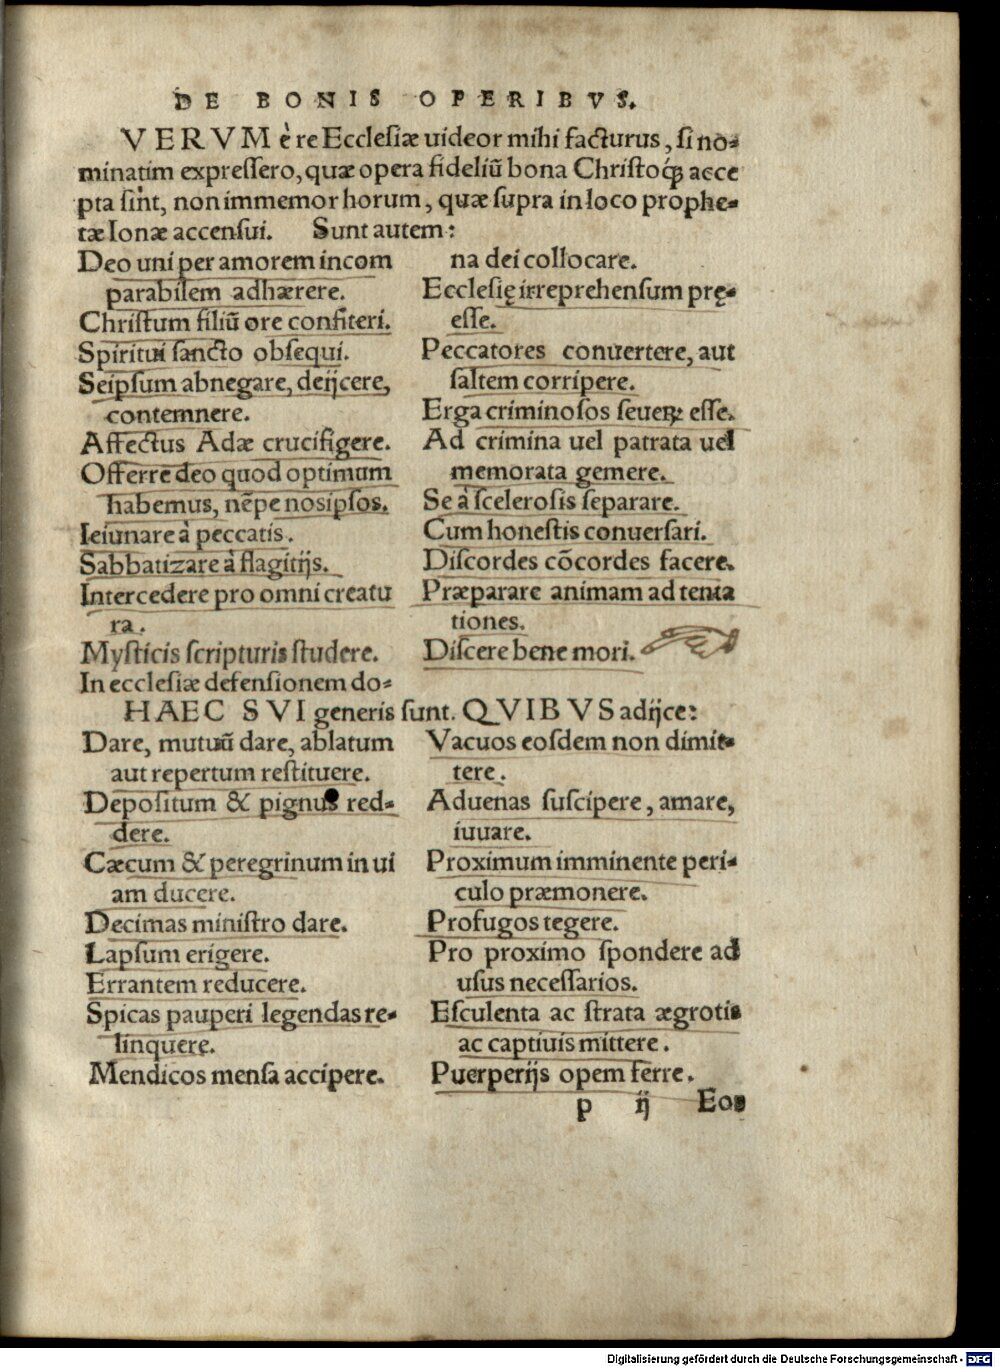 DE BONIS OPERIBVS.
VERVM è re Ecclesiæ uideor mihi facturus, si no-
minatim expressero, quæ opera fideliũ bona Christoq́ꝫ acce
pta sint, non immemor horum, quæ supra in loco prophe-
tæ Ionæ accensui. Sunt autem:
Deo uni per amorem incom
parabilem adhærere.
Christum filiũ ore confiteri.
Spiritui sancto obsequi.
Seipsum abnegare, deijcere,
contemnere.
Affectus Adæ crucifigere.
Offerre deo quod optimum
habemus, nẽpe nosipsos.
Ieiunare à peccatis.
Sabbatizare à flagitijs.
Intercedere pro omni creatu
ra.
Mysticis scripturis studere.
In ecclesiæ defensionem do-
na dei collocare.
Ecclesię irreprehensum prę-
esse.
Peccatores conuertere, aut
saltem corripere.
Erga criminosos seueꝝ esse.
Ad crimina uel patrata uel
memorata gemere.
Se à scelerosis separare.
Cum honestis conuersari.
Discordes cõcordes facere.
Præparare animam ad tenta
tiones.
Discere bene mori.
HAEC SVI generis sunt. QVIBVS adijce:
Dare, mutuũ dare, ablatum
aut repertum restituere.
Depositum & pignus red-
dere.
Cæcum & peregrinum in ui
am ducere.
Decimas ministro dare.
Lapsum erigere.
Errantem reducere.
Spicas pauperi legendas re-
linquere.
Mendicos mensa accipere.
Vacuos eosdem non dimit-
tere.
Aduenas suscipere, amare,
iuuare.
Proximum imminente peri-
culo præmonere.
Profugos tegere.
Pro proximo spondere ad
usus necessarios.
Esculenta ac strata ægrotis
ac captiuis mittere.
Puerperijs opem ferre.
p ij Eos
Digitalisierung gefördert durch die Deutsche Forschungsgemeinschaft - DFG